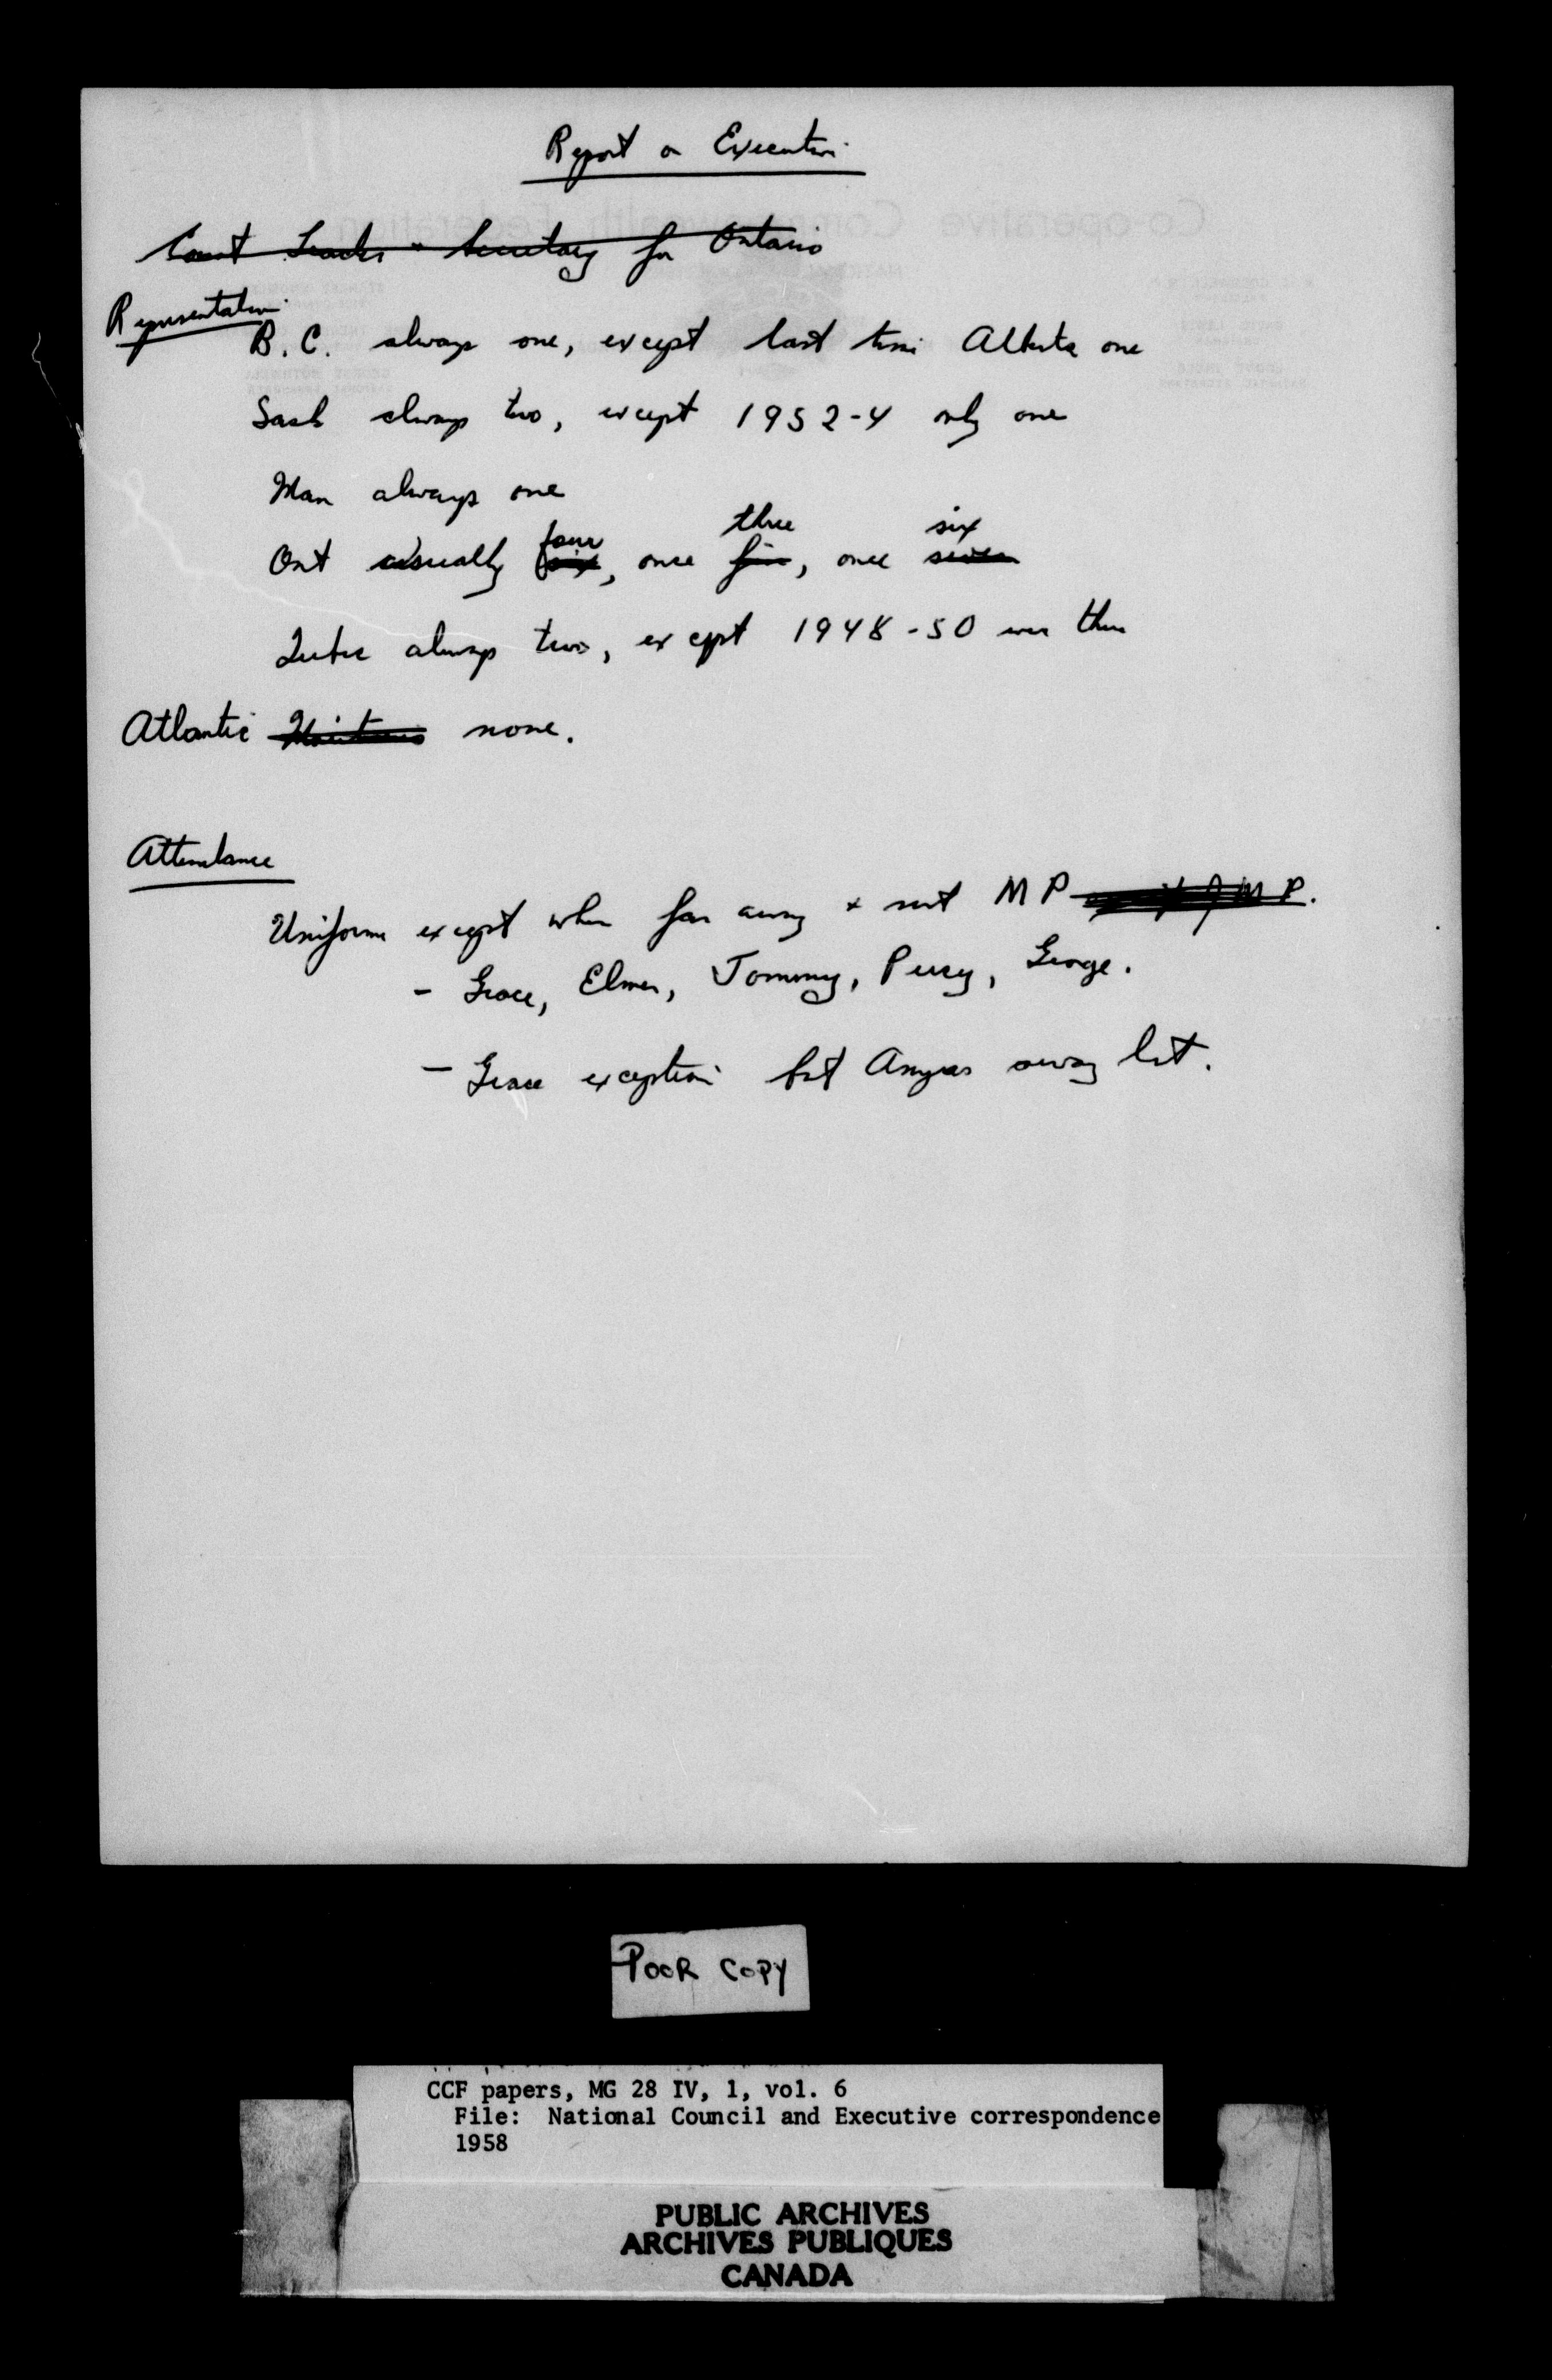 Report on Executive
Count Leader & Secretary for Ontario
Representation
B.C. always one, except last time Alberta one
Sask always two, except 1952-4 only one
Man always one
four three six
Ont usually six, once five, once seven
Quebec always two, except 1948-50 were three
Atlantic Maritimes none.
Attendance
Uniform except when far away & not MP M P.
- Grace, Elmer, Tommy, Percy, George.
- Grace exception but Angus away lot.
POOR COPY
CCF papers, MG 28 IV, 1, vol. 6
File: National Council and Executive correspondence
1958
PUBLIC ARCHIVES
ARCHIVES PUBLIQUES
CANADA